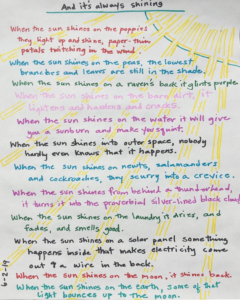 And it's always shining
When the sun shines on the poppies
they light up and shine, paper-thin
petals twitching in the wind.
When the sun shines on the peas, the lowest
branches and leaves are still in the shade.
When the sun shines on a raven's back it glints purple.
When the sun shines on the bare dirt, it
lightens and hardens and cracks.
When the sun shines on the water it will give
you a sunburn and make you squint.
When the sun shines into outer space, nobody
hardly even knows that it happens.
When the sun shines on newts, salamanders
and cockroaches they scurry into a crevice.
When the sun shines from behind a thunderhead,
it turns it into the proverbial silver-lined black cloud
When the sun shines on the laundry it dries, and
fades, and smells good.
When the sun shines on a solar panel something
happens inside that makes electricity come
out a wire in the back.
When the sun shines on the moon, it shines back.
When the sun shines on the earth, some of that
light bounces up to the moon.
6-2-19